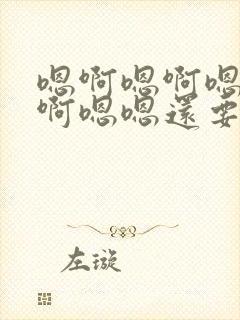 嗯啊嗯啊嗯
啊嗯嗯還要
左璇